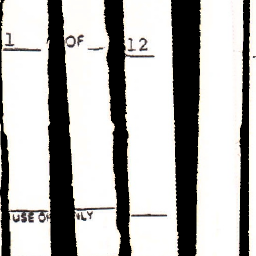 1 OF 12
USE ONLY